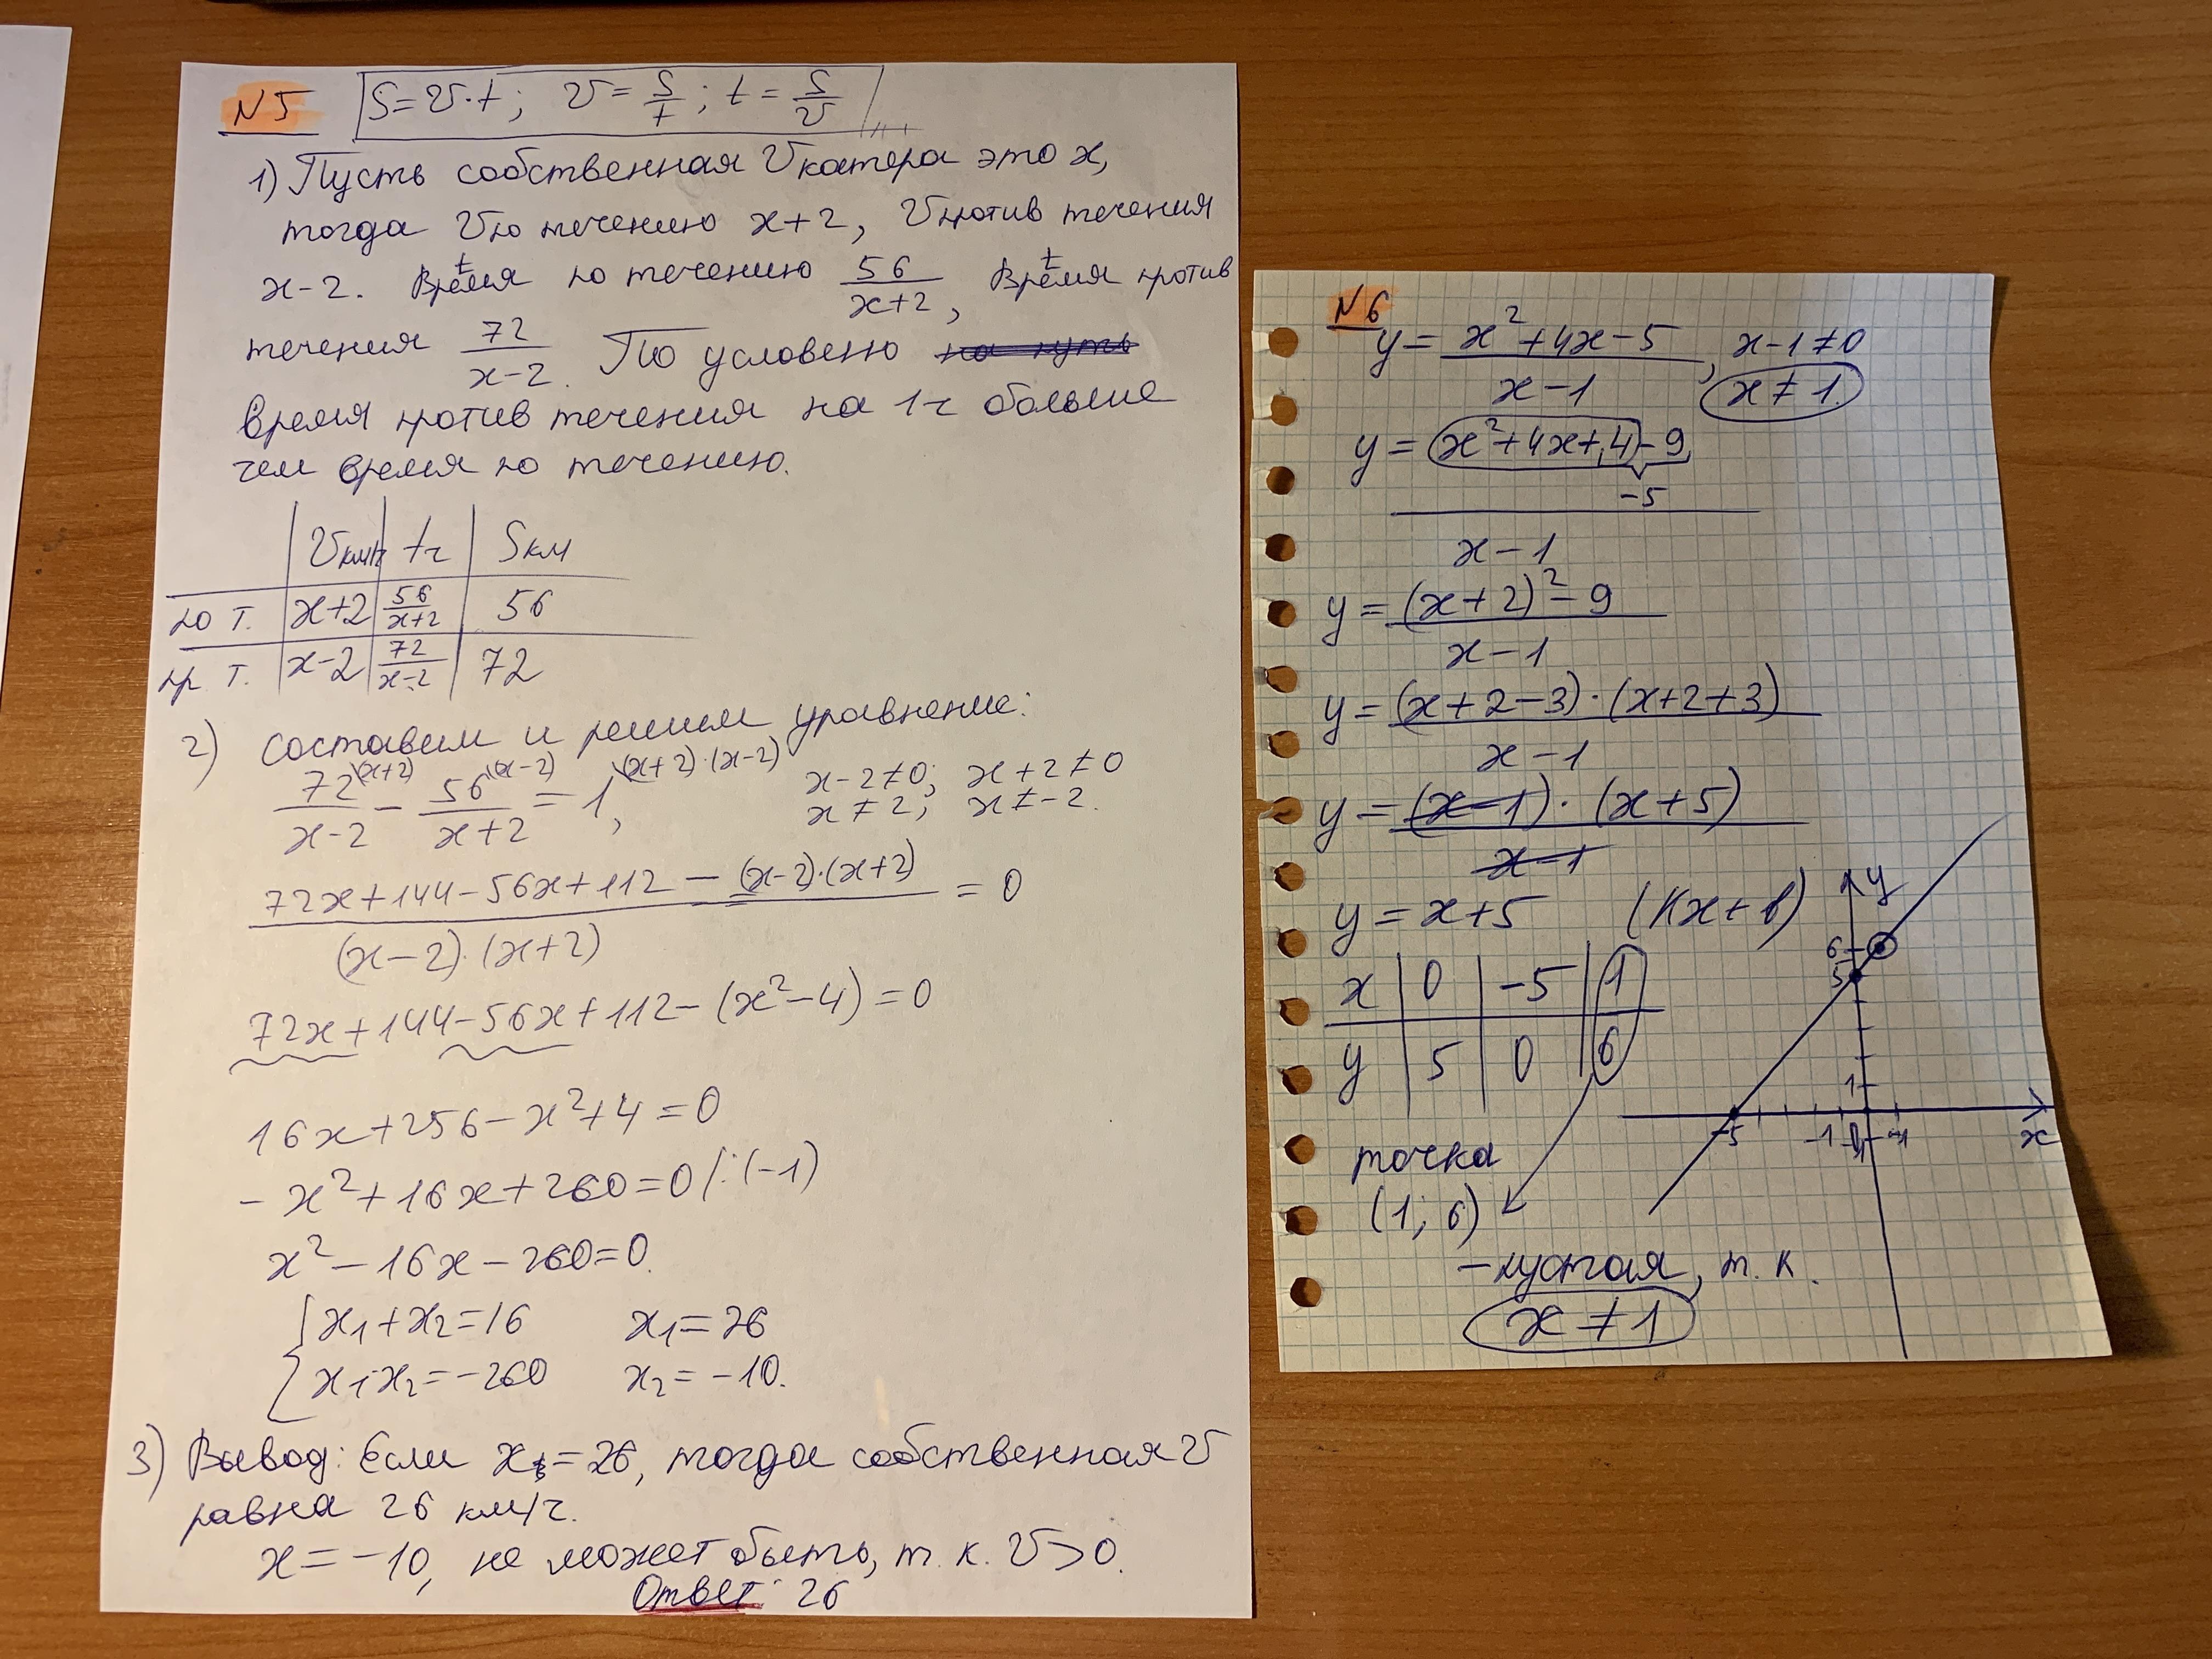 N5 S=v·t; v=S/t; t=S/v
1) Пусть собственная v катера это x,
тогда v по течению x+2, v против течения
x-2. Время t по течению 56/(x+2), Время t против
течения 72/(x-2). По условию на путь
время против течения на 1 ч больше
чем время по течению.
v км/ч t ч S км
по т. x+2 56/(x+2) 56
пр. т. x-2 72/(x-2) 72
2) Составим и решим уравнение:
72\(x+2)/(x-2) - 56\(x-2)/(x+2) = 1\(x+2)·(x-2), x-2≠0; x+2≠0
x≠2; x≠-2.
(72x+144-56x+112-(x-2)·(x+2))/((x-2)·(x+2)) = 0
72x+144-56x+112-(x²-4)=0
16x+256-x²+4=0
-x²+16x+260=0 /:(-1)
x²-16x-260=0.
{x₁+x₂=16 x₁=26
x₁·x₂=-260 x₂=-10.
3) Вывод: Если x=26, тогда собственная v
равна 26 км/ч.
x=-10, не может быть, т.к. v>0.
Ответ: 26
N6
y=(x²+4x-5)/(x-1), x-1≠0
x≠1.
y=(x²+4x+4-9)/(x-1)
-5
y=((x+2)²-9)/(x-1)
y=((x+2-3)·(x+2+3))/(x-1)
y=((x-1)·(x+5))/(x-1)
y=x+5 (kx+b)
x 0 -5 1
y 5 0 6
y
6
5
1
-5 -1 0 1 x
-1
точка
(1; 6)
-пустая, т.к.
x≠1